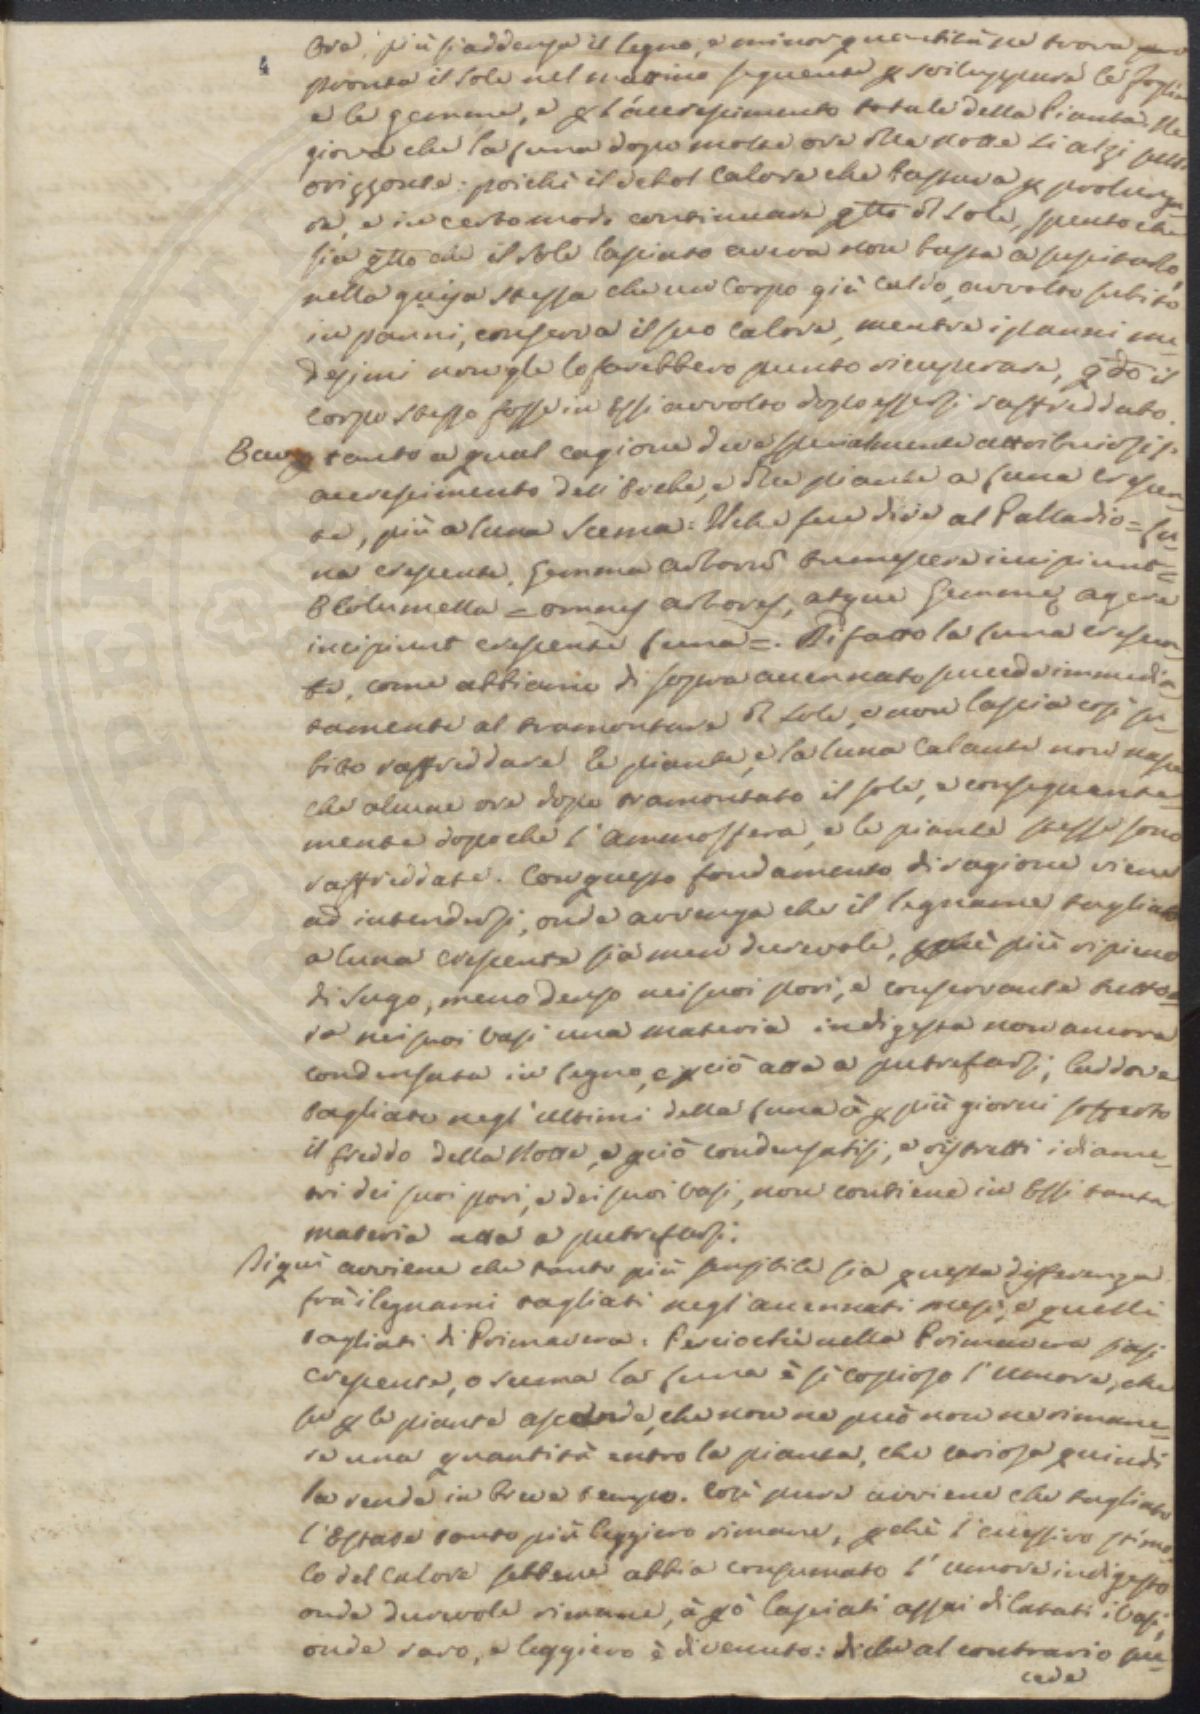 4
ore, più si addensa il legno, e minor quantità ne trova
pronta il sole nel mattino seguente p sviluppare le foglie
e le gemme, e p l'accrescimento totale della Pianta. Ne
giova che la luna dopo molte ore dlla notte si alzi sull'
orizzonte: poichè il debol calore che bastava p prolunga-
re, e in certo modo continuare qllo dl sole, spento che
sia qllo che il sole lasciato aveva non basta a suscitarlo,
nella guisa stessa che un corpo già caldo, avvolto subito
in panni, conserva il suo calore, mentre i panni me-
desimi non gle lo farebbero punto ricuperare, qdo il
corpo stesso fosse in Essi avvolto dopo essersi raffreddato.
Ecco p tanto a qual cagione deve specialmente attribuirsi l'
accrescimento dell'Erbe, e dlle piante a luna crescen-
te, più a luna scema: Il che fece dire al Palladio = Lu-
na crescente, Gemma arborũ tumescere incipiunt =
E Columella = omnes arbores, atque Gemmę agere
incipiunt crescente luna =. Di fatto la luna crescen-
te, come abbiamo di sopra accennato succede immedia-
tamente al tramontare dl sole, e non lascia così su-
bito raffreddare le piante, e la luna calante non nasce
che alcune ore dopo tramontato il sole, e conseguente-
mente dopo che l'ammosfera, e le piante stesse sono
raffreddate. Con questo fondamento di ragione viene
ad intendersi, onde avvenga che il legname tagliato
a luna crescente sia men durevole, pchè più ripieno
di sugo, meno denso nei suoi pori, e conservante tutto-
ra nei suoi vasi una materia indigesta non ancora
condensata in legno, e pciò atta a putrefarsi; laddove
tagliato negl'ultimi della luna à p più giorni sofferto
il freddo della notte, e pciò condensatisi, e ristretti i diame-
tri dei suoi pori, e dei suoi vasi, non contiene in Essi tanta
materia atta a putrefarsi.
Di quì avviene che tanto più sensibile sia questa differenza
frà i legnami tagliati negl'accennati mesi, e quelli
tagliati di Primavera. Perciochè nella Primavera siasi
crescente, o scema la luna è sì copioso l'umore, che
su p le piante ascende, che non ne può non ne rimane-
re una quantità entro la pianta, che cariosa quindi
la rende in breve tempo. Così pure avviene che tagliato
l'Estate tanto più leggiero rimane, pchè l'eccessivo stimo-
lo del calore sebbene abbia consumato l'umore indigesto
onde durevole rimane, à pò lasciati assai dilatati i vasi,
onde raro, e leggiero è divenuto: di che al contrario suc-
cede